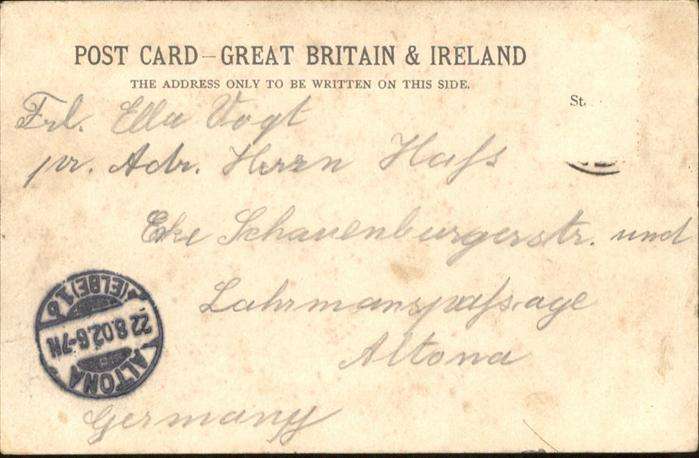 POST CARD–GREAT BRITAIN & IRELAND
THE ADDRESS ONLY TO BE WRITTEN ON THIS SIDE.
St.
Frl. Ella Vogt
pr. Adr. Herrn Haſs
Eke Schauenburgerstr. und
Lahrmannpaſsage
Altona
Germany
ALTONA
22.8.02.6-7N
(ELBE) 1 b